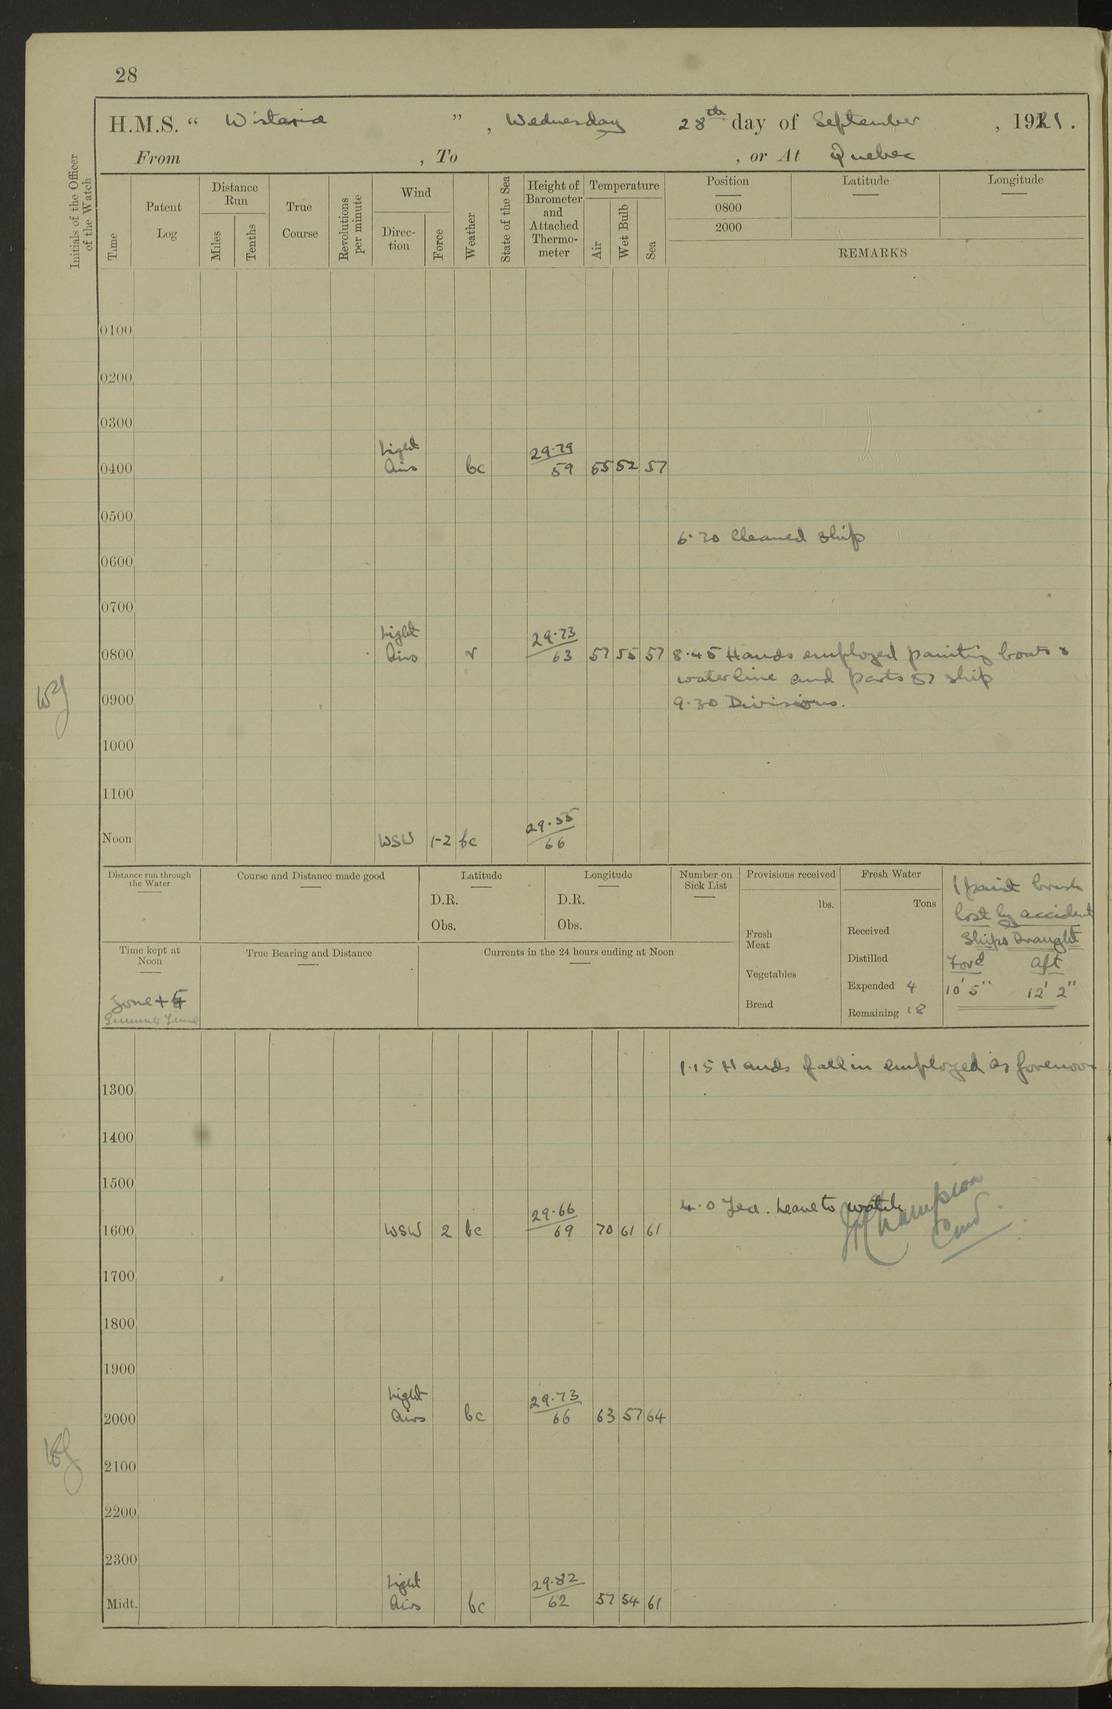 28
H.M.S. “ Wistaria ” , Wednesday 28th day of September , 1921.
From , To , or At Quebec
Initials of the Officer of the Watch
Time
Patent Log
Distance Run
Miles
Tenths
True Course
Revolutions per minute
Wind
Direc-tion
Force
Weather
State of the Sea
Height of Barometer and Attached Thermo-meter
Temperature
Air
Wet Bulb
Sea
Position Latitude Longitude
0800
2000
REMARKS
0100
0200
0300
Light 29.79
0400 Airs bc 59 55 52 57
0500
6.30 Cleaned Ship
0600
0700
Light 29.73
0800 Airs r 63 57 55 57 8.45 Hands employed painting boats &
waterline and parts of ship
0900 9.30 Divisions.
1000
1100
29.55
Noon WSW 1-2 bc 66
Distance run through the Water
Course and Distance made good
Latitude
D.R.
Obs.
Longitude
D.R.
Obs.
Number on Sick List
Provisions received
lbs.
Fresh Meat
Vegetables
Bread
Fresh Water
Tons
Received
Distilled
Expended 4
Remaining 18
1 paint brush
lost by accident
Ships Draught
Ford aft
10' 5" 12' 2"
Time kept at Noon
Zone +
Summer Time
True Bearing and Distance
Currents in the 24 hours ending at Noon
1.15 Hands fall in employed as forenoon
1300
1400
1500
29.66 4.0 Tea. Leave to watch
1600 WSW 2 bc 69 70 61 61
Champion
1700
1800
1900
Light 29.73
2000 Airs bc 66 63 57 64
2100
2200
2300
Light 29.82
Midt. Airs bc 62 57 54 61